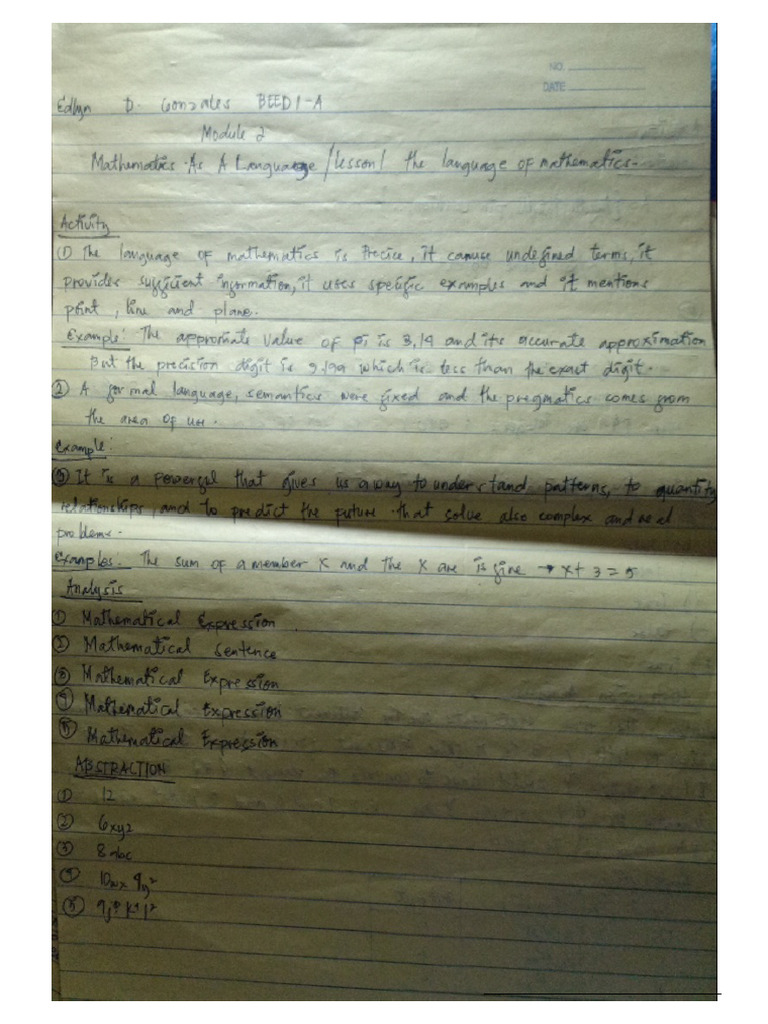 NO.
DATE
Edlyn D. Gonzales BEED 1-A
Module 2
Mathematics As A Language / lesson 1 the language of mathematics.
Activity
① The language of mathematics is Precice, it canuse undefined terms, it
provides sufficient information, it uses specific examples and it mentions
point, line and plane.
Example: The appromiate value of pi is 3,14 and its accurate approximation
But the precision digit is which is less than the exact digit.
② A formal language, semantics were fixed and the pragmatics comes from
the area of use.
Example:
③ It is a powerful that gives us a way to understand patterns, to quantity
relationships, and to predict the future that solve also complex and real
problems.
Examples. The sum of a member X and the X are is five → x + 3 = 5
Analysis
① Mathematical Expression
② Mathematical Sentence
③ Mathematical Expression
④ Mathematical Expression
⑤ Mathematical Expression
ABSTRACTION
① 12
② 6xyz
③ 8abc
④
⑤